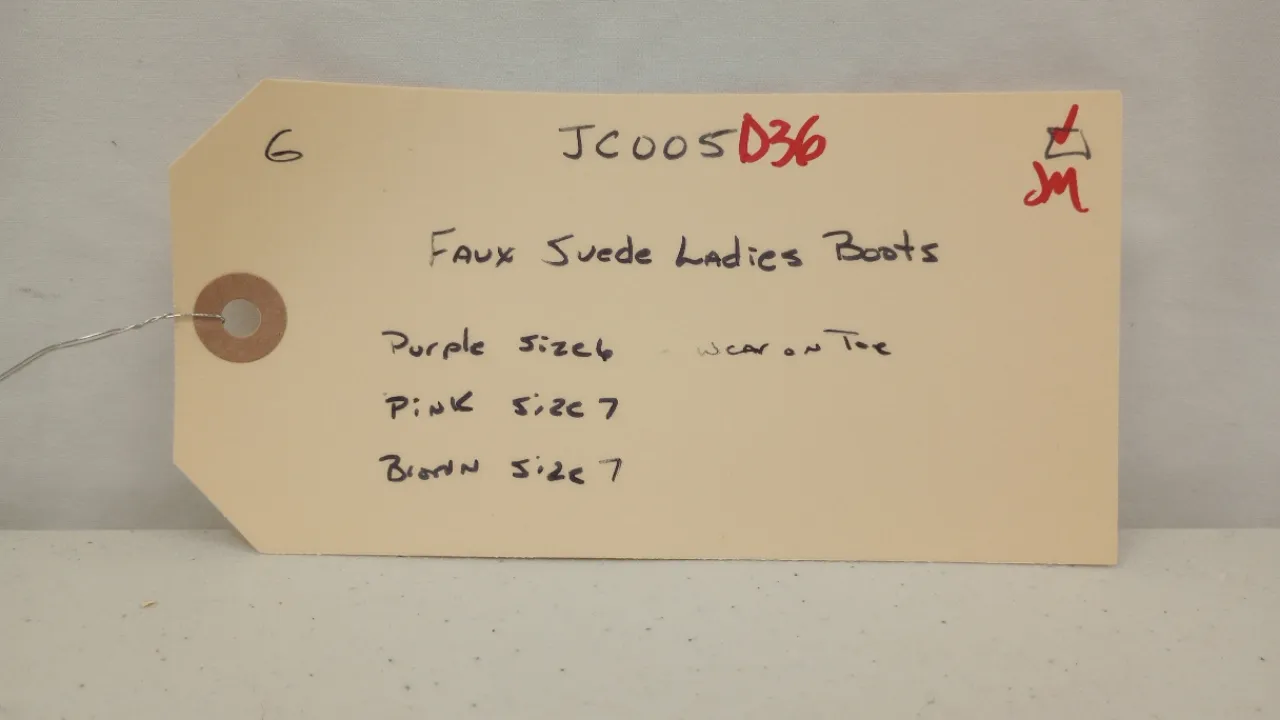 6 JC005D36
JM
Faux Suede Ladies Boots
Purple Size 6 - wear on Toe
Pink Size 7
Brown Size 7